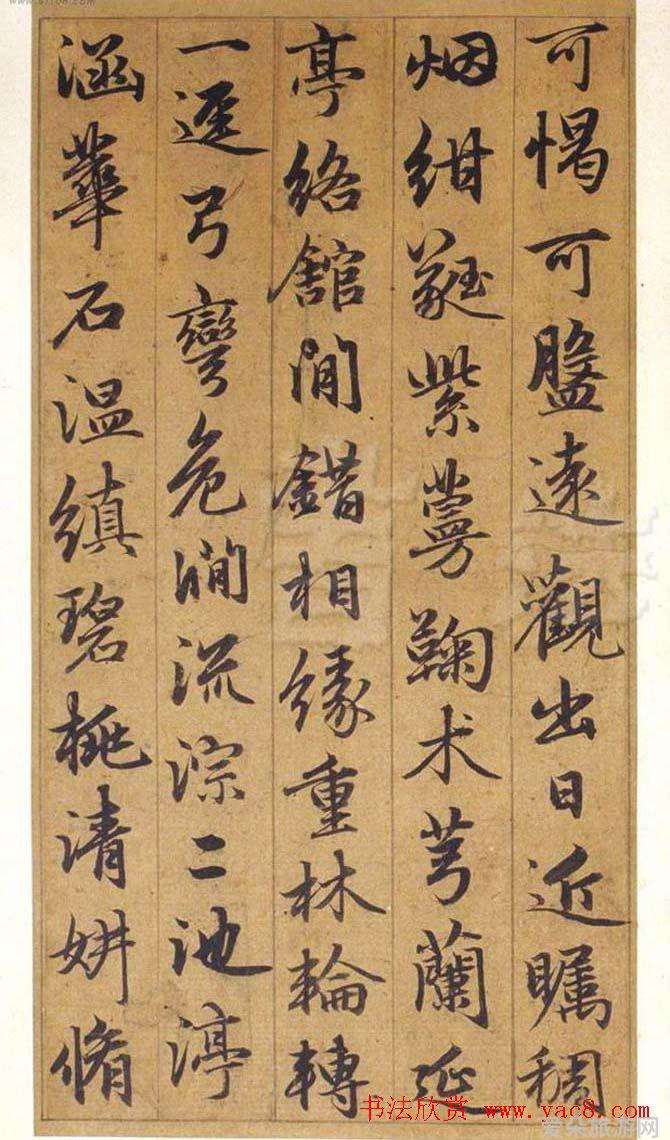 可愒可盤遠觀出日近矚稠
烟紺蕤紫萼鞠术芎蘭延
亭絡館間錯相緣重林輪轉
一逕弓彎危澗流淙二池渟
涵華石温縝碧桃清妍脩
书法欣赏 www.yac8.com